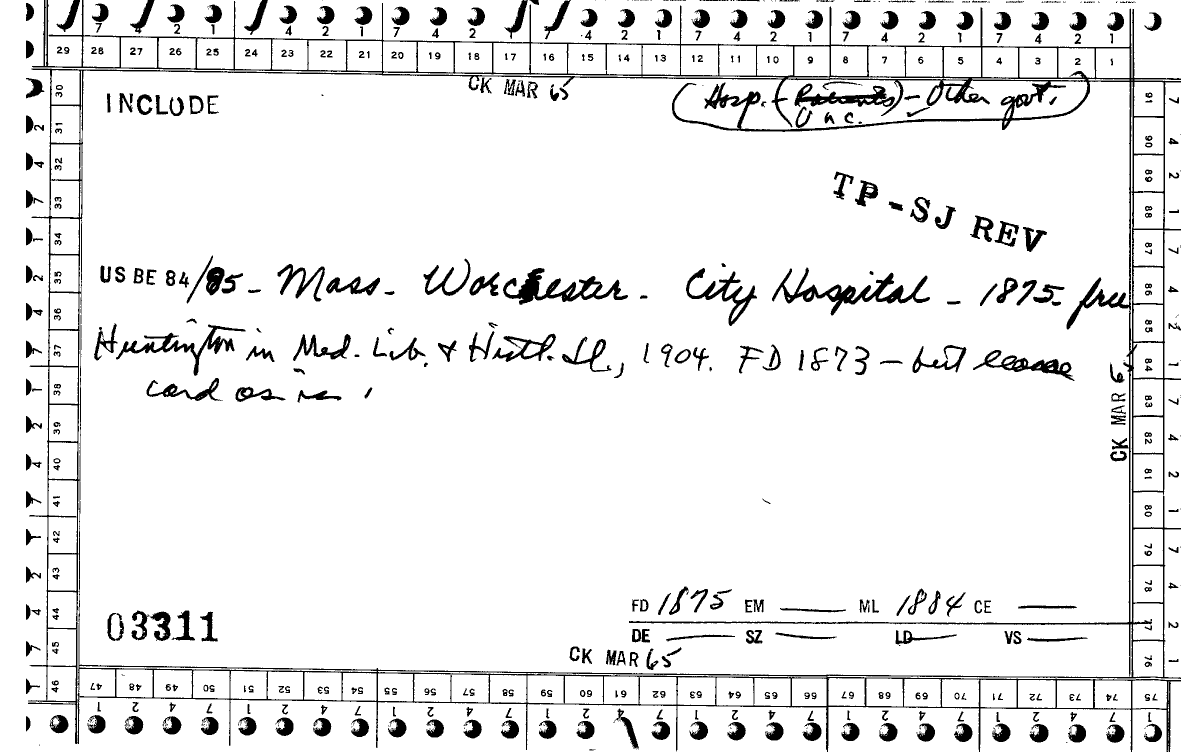 7 4 2 1 7 4 2 1 7 4 2 1 7 4 2 1 7 4 2 1 7 4 2 1
29 28 27 26 25 24 23 22 21 20 19 18 17 16 15 14 13 12 11 10 9 8 7 6 5 4 3 2 1
CK MAR 65
INCLUDE
(Hosp. - (Patients) - Other govt.)
Unc.
TP-SJ REV
US BE 84/85 - Mass. Worcester - City Hospital - 1875 - free
Huntington in Med. Lib. & Histl. Jl., 1904. FD 1873 - but leave
card as is.
CK MAR 6
FD 1875 EM ML 1884 CE
DE SZ LD VS
03311
CK MAR 65
30 31 32 33 34 35 36 37 38 39 40 41 42 43 44 45 46
91 90 89 88 87 86 85 84 83 82 81 80 79 78 77 76
47 48 49 50 51 52 53 54 55 56 57 58 59 60 61 62 63 64 65 66 67 68 69 70 71 72 73 74 75